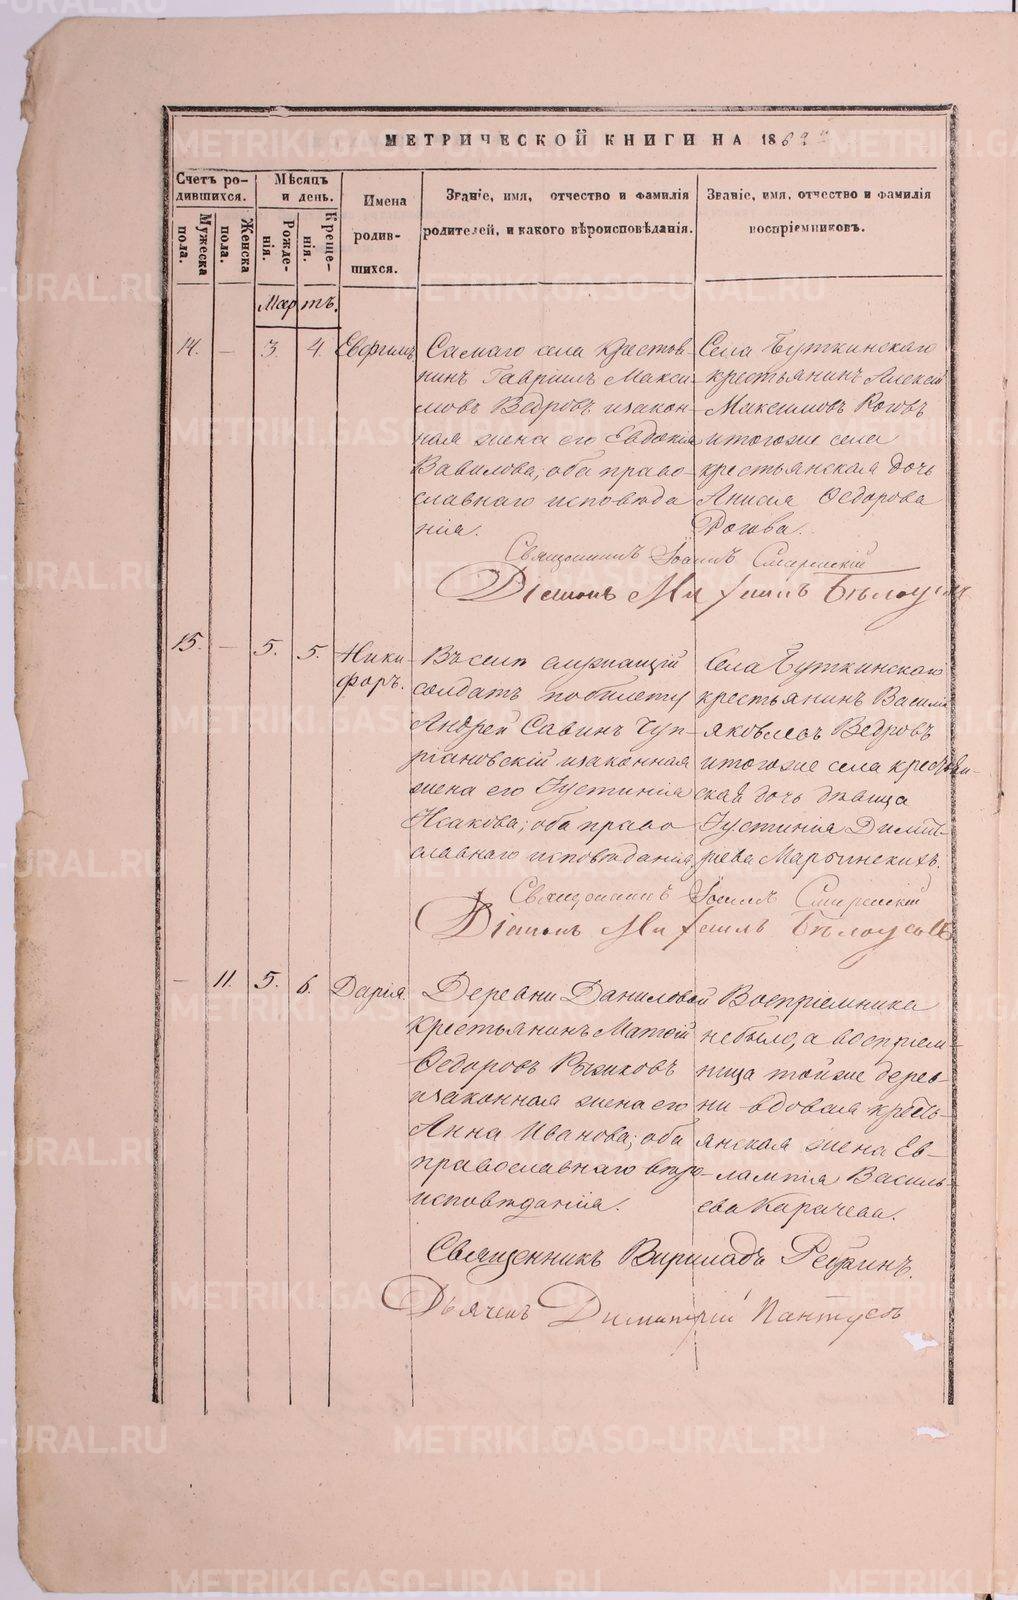 МЕТРИЧЕСКОЙ КНИГИ НА 186
Счетъ родившихся.
Мѣсяцъ и день.
Имена родившихся.
Званіе, имя, отчество и фамилія родителей, и какого вѣроисповѣданія.
Званіе, имя, отчество и фамилія воспріемниковъ.
Мужеска пола.
Женска пола.
Рожденія.
Крещенія.
Мартъ.
14. — 3. 4. Евфимъ
Самаго села крестья-
нинъ Гавріилъ Макси-
мовъ Ведровъ изакон-
ная жена его Евдокія
Вавилова; оба право-
славнаго исповѣда
нія.
Села Буткинскаго
крестьянинъ Алексѣй
Максимовъ Роговъ
итогоже села
крестьянская дочь
Анисія Ѳедорова
Рогова.
Священникъ Іоаннъ Смиренскій
Діаконъ Михаилъ Бѣлоусовъ
15. — 5. 5. Ники-
форъ.
Въ селѣ служащій
солдатъ побилету
Андрей Савинъ Чуп-
ріановскій изаконная
жена его Іустинія
Исакова; оба право
славнаго исповѣданія.
Села Буткинскаго
крестьянинъ Василій
Яковлевъ Ведровъ
итогоже села крестьян-
ская дочь дѣвица
Іустинія Димит-
ріева Мартинскихъ.
Священникъ Іоаннъ Смиренскій
Діаконъ Михаилъ Бѣлоусовъ
— 11. 5. 6. Дарія.
Деревни Даниловой
крестьянинъ Матѳей
Ѳедоровъ Рыжковъ
изаконная жена его
Анна Иванова; оба
православнаго вѣро-
исповѣданія.
Воспріемника
небыло, а воспріем-
ница тойже дерев-
ни вдовая кресть-
янская жена Ев-
лампія Василь-
ева Карачева.
Священникъ
Дьячекъ Димитрій